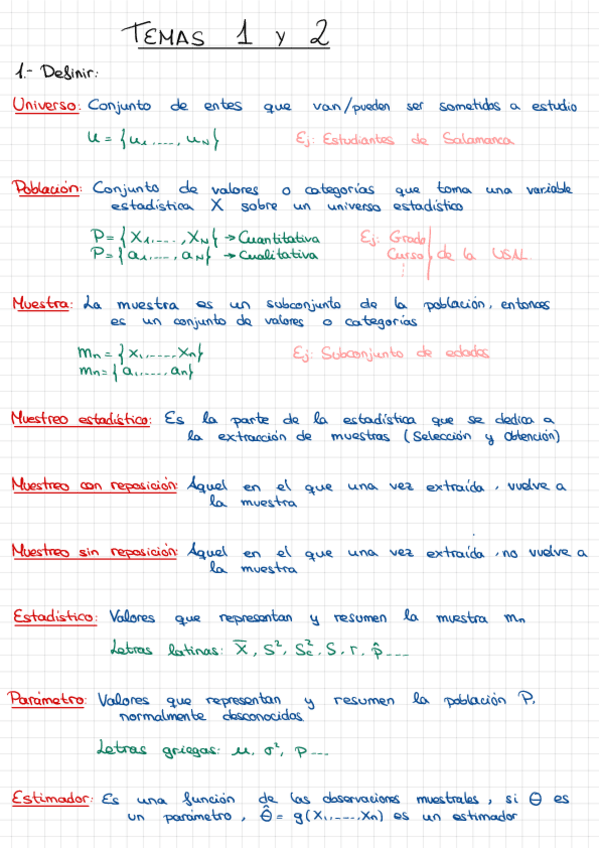 TEMAS 1 y 2
1.- Definir:
Universo: Conjunto de entes que van/pueden ser sometidos a estudio
u = {u1,...., uN} Ej: Estudiantes de Salamanca
Población: Conjunto de valores o categorías que toma una variable
estadística X sobre un universo estadístico
P = {X1,...., XN} → Cuantitativa Ej: Grado
P = {a1,...., aN} → Cualitativa Curso de la USAL
⋮
Muestra: La muestra es un subconjunto de la población, entonces
es un conjunto de valores o categorías
mn = {x1,....., xn} Ej: Subconjunto de edades
mn = {a1,....., an}
Muestreo estadístico: Es la parte de la estadística que se dedica a
la extracción de muestras (Selección y Obtención)
Muestreo con reposición: Aquel en el que una vez extraída, vuelve a
la muestra
Muestreo sin reposición: Aquel en el que una vez extraída, no vuelve a
la muestra
Estadístico: Valores que representan y resumen la muestra mn
Letras latinas: X̅, S², Sc², S, r, p̂ ....
Parámetro: Valores que representan y resumen la población P,
normalmente desconocidos
Letras griegas: μ, σ², p ...
Estimador: Es una función de las observaciones muestrales, si Θ es
un parámetro, Θ̂ = g(X1,....., Xn) es un estimador